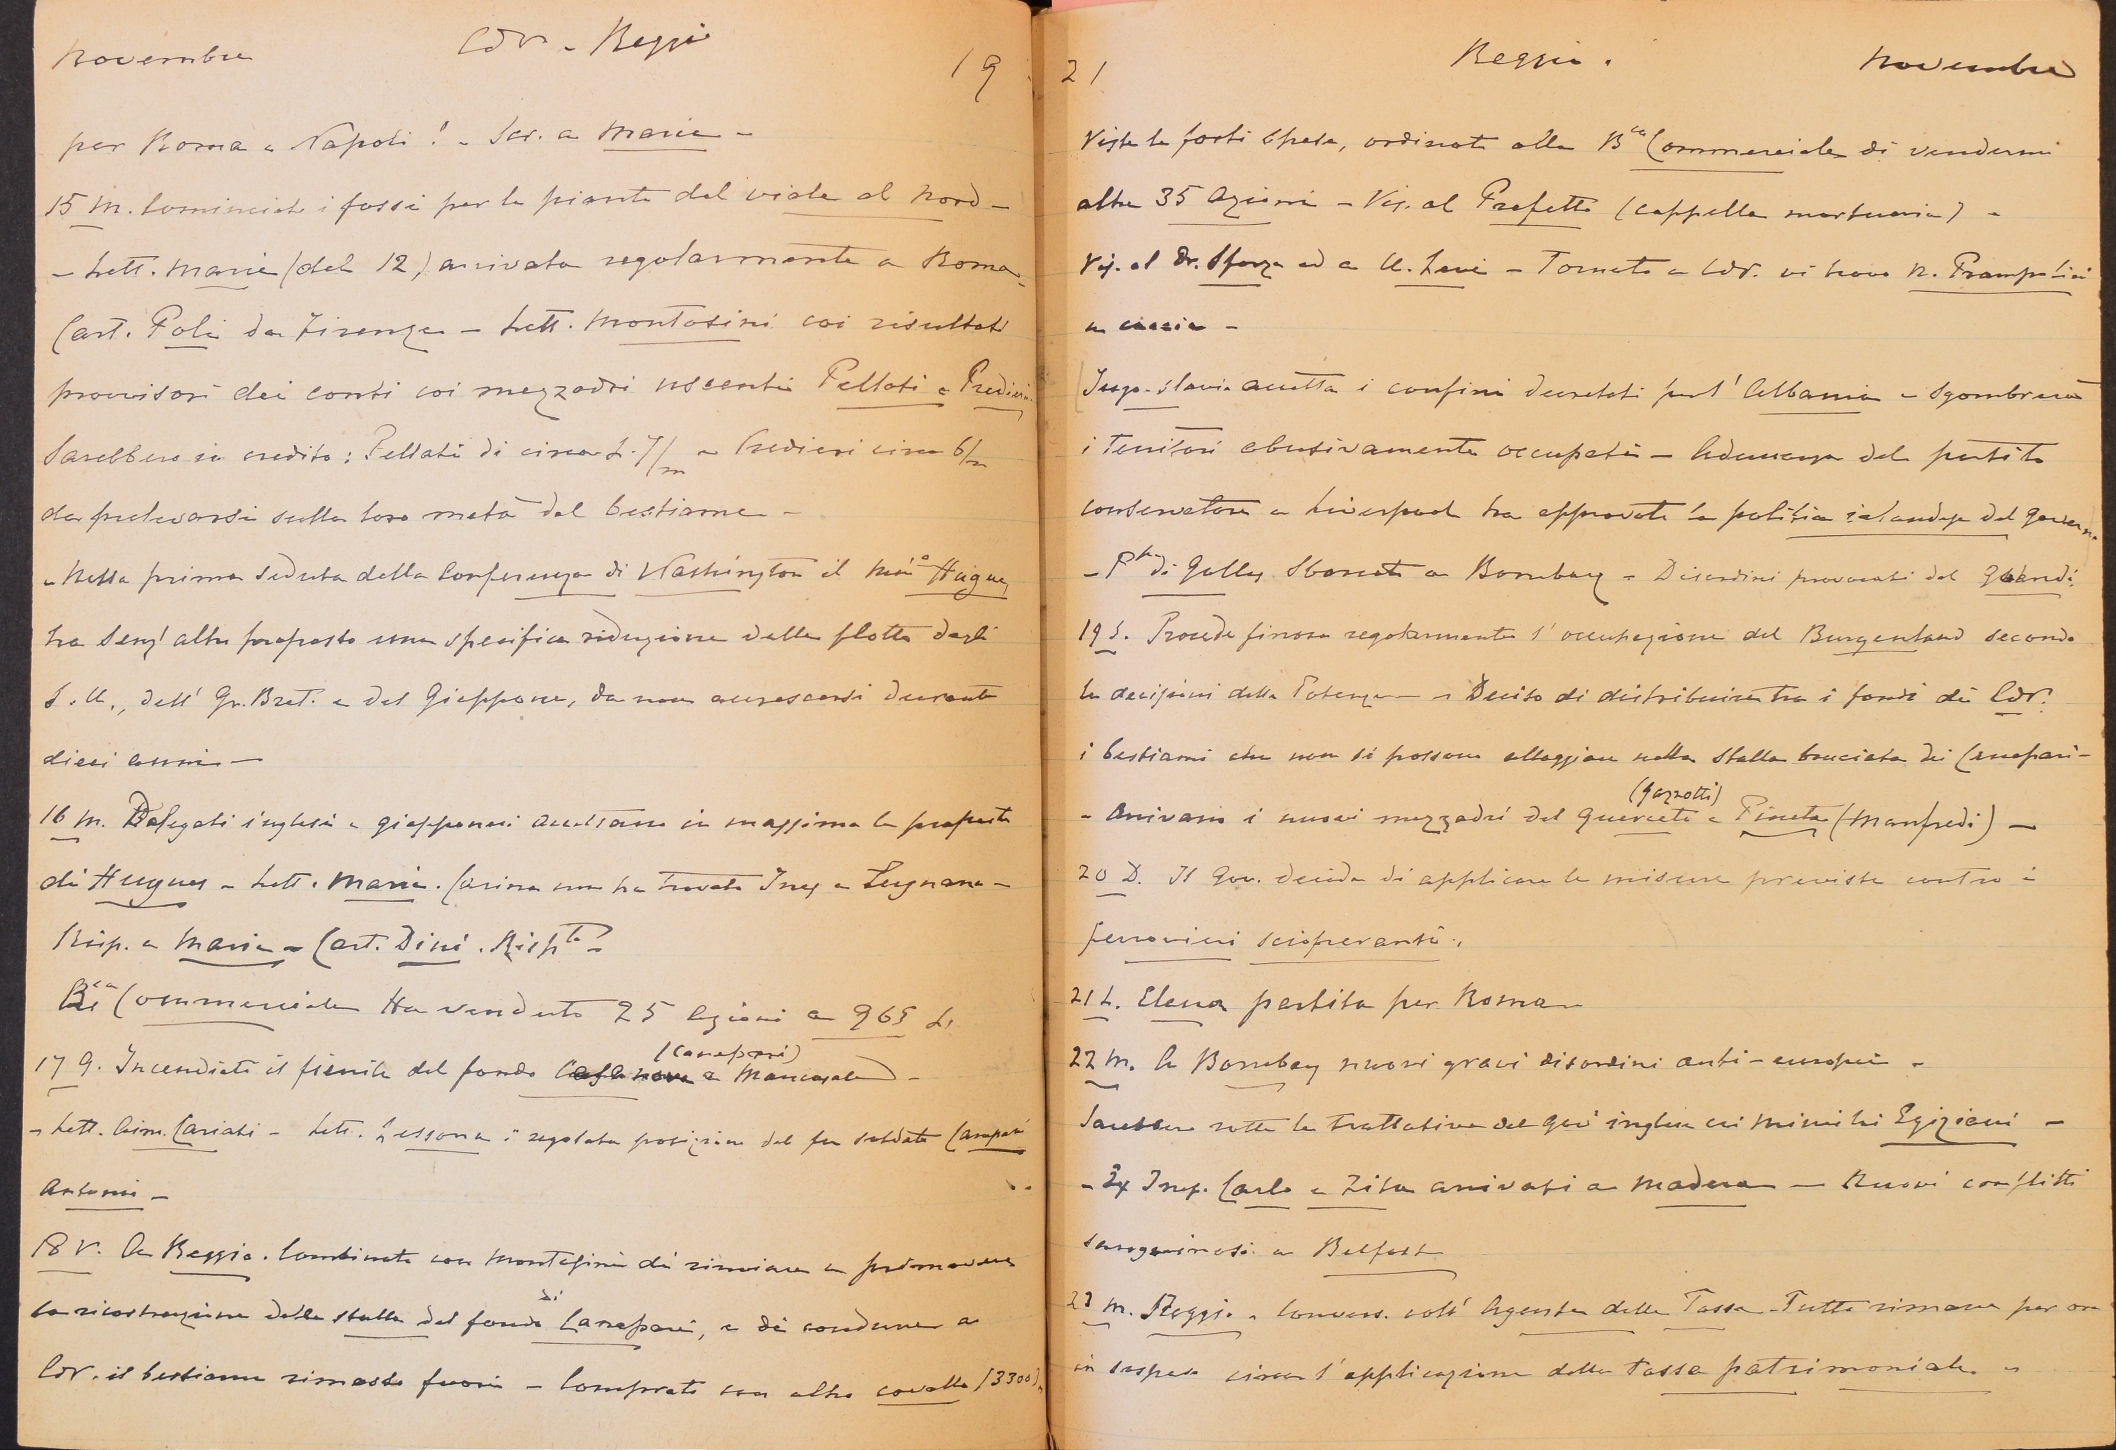 Novembre CdV - Reggio 19
per Roma e Napoli! - Scr. a Maria -
15 M. Cominciati i fossi per le piante del viale al Nord -
- Lett. Maria (del 12) arrivata regolarmente a Roma -
Cart. Poli da Firenze - Lett. Montasini coi risultati
provvisori dei conti coi mezzadri uscenti Pellati e Predieri
Sarebbero in credito: Pellati di circa L. 7/m e Predieri circa 6/m
da prelevarsi sulla loro metà del bestiame -
- Nella prima seduta della Conferenza di Washington il Min° Hugues
ha senz'altro proposto una specifica riduzione delle flotte degli
S. U., dell' Gr. Bret. e del Giappone, da non accrescersi durante
dieci anni -
16 M. Delegati inglesi e giapponesi accettano in massima le proposte
di Hugues - Lett. Maria. Carina non ha trovato Inez a Lugnano -
Risp. a Maria - Cart. Dini. Rispta -
Bca Commerciale Ha venduto 25 Azioni a 965 L.
17 G. Incendiato il fienile del fondo Casa nova (Canepari) a Mancasale -
- Lett. Aim. Cariati - Lett. Lessona: regolata posizione del fu soldato Canepari
Antonio -
18 V. A Reggio. Combinato con Montasini di rinviare a primavera
la ricostruzione della stalla del fondo di Canepari, e di condurre a
CdV. il bestiame rimasto fuori - Comprato un altro cavallo (3300) -
21 Reggio. Novembre
Viste le forti spese, ordinato alla Bca Commerciale di vendermi
altre 35 Azioni - Vis. al Prefetto (cappella mortuaria) -
Vis. al Dr. Sforza ed a U. Levi - Tornato a CdV. vi trovo N. Prampolini
a caccia -
Jugo-slavia accetta i confini decretati per l'Albania e sgombrerà
i territori abusivamente occupati - Adunanza del partito
conservatore a Liverpool ha approvato la politica irlandese del governo
- Ppe di Galles sbarcato a Bombay - Disordini provocati dal Ghandi.
19 S. Procede finora regolarmente l'occupazione del Burgenland secondo
le decisioni delle Potenze - Deciso di distribuire tra i fondi di CdV.
i bestiami che non si possono alloggiare nella stalla bruciata di Canepari -
- Arrivano i nuovi mezzadri del Querceto (Gazzotti) e Pineta (Manfredi) -
20 D. Il Gov. decide di applicare le misure previste contro i
ferrovieri scioperanti.
21 L. Elena partita per Roma
22 M. A Bombay nuovi gravi disordini anti-europei -
Sarebbero rotte le trattative del gov. inglese coi ministri Egiziani -
- Ex Imp. Carlo e Zita arrivati a Madera - Nuovi conflitti
sanguinosi a Belfast
23 M. Reggio. Convers. coll' Agente delle Tasse - Tutto rimane per ora
in sospeso circa l'applicazione della tassa patrimoniale -